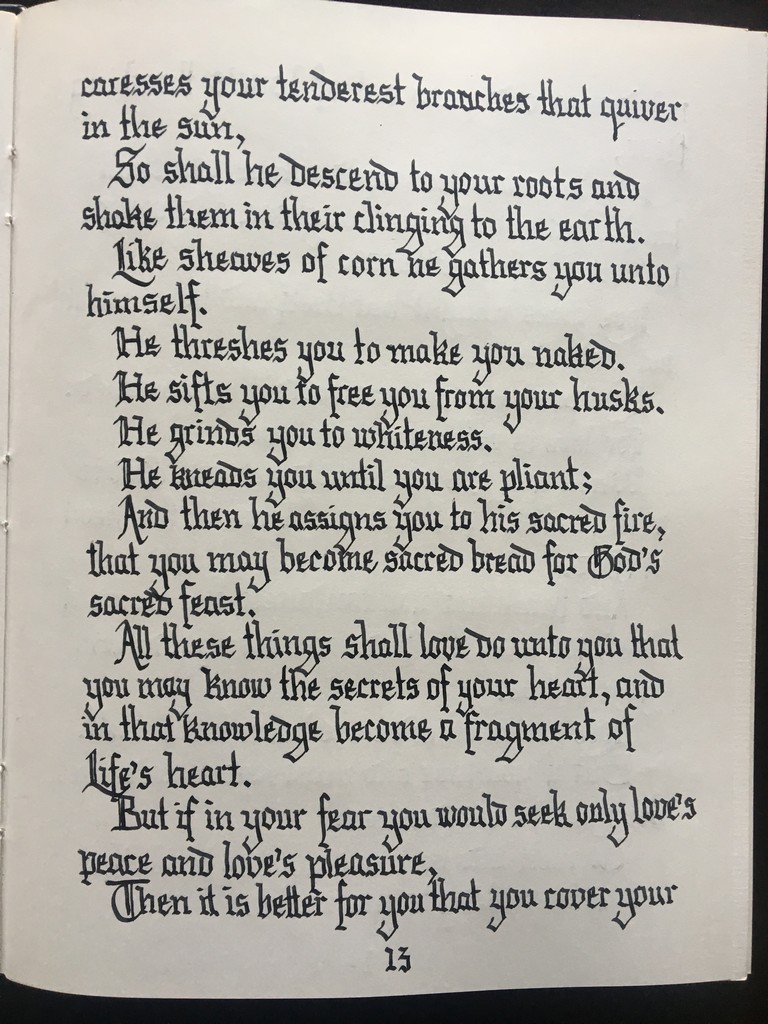 caresses your tenderest branches that quiver
in the sun,
So shall he descend to your roots and
shake them in their clinging to the earth.
Like sheaves of corn he gathers you unto
himself.
He threshes you to make you naked.
He sifts you to free you from your husks.
He grinds you to whiteness.
He kneads you until you are pliant;
And then he assigns you to his sacred fire,
that you may become sacred bread for God's
sacred feast.
All these things shall love do unto you that
you may know the secrets of your heart, and
in that knowledge become a fragment of
Life's heart.
But if in your fear you would seek only love's
peace and love's pleasure,
Then it is better for you that you cover your
13